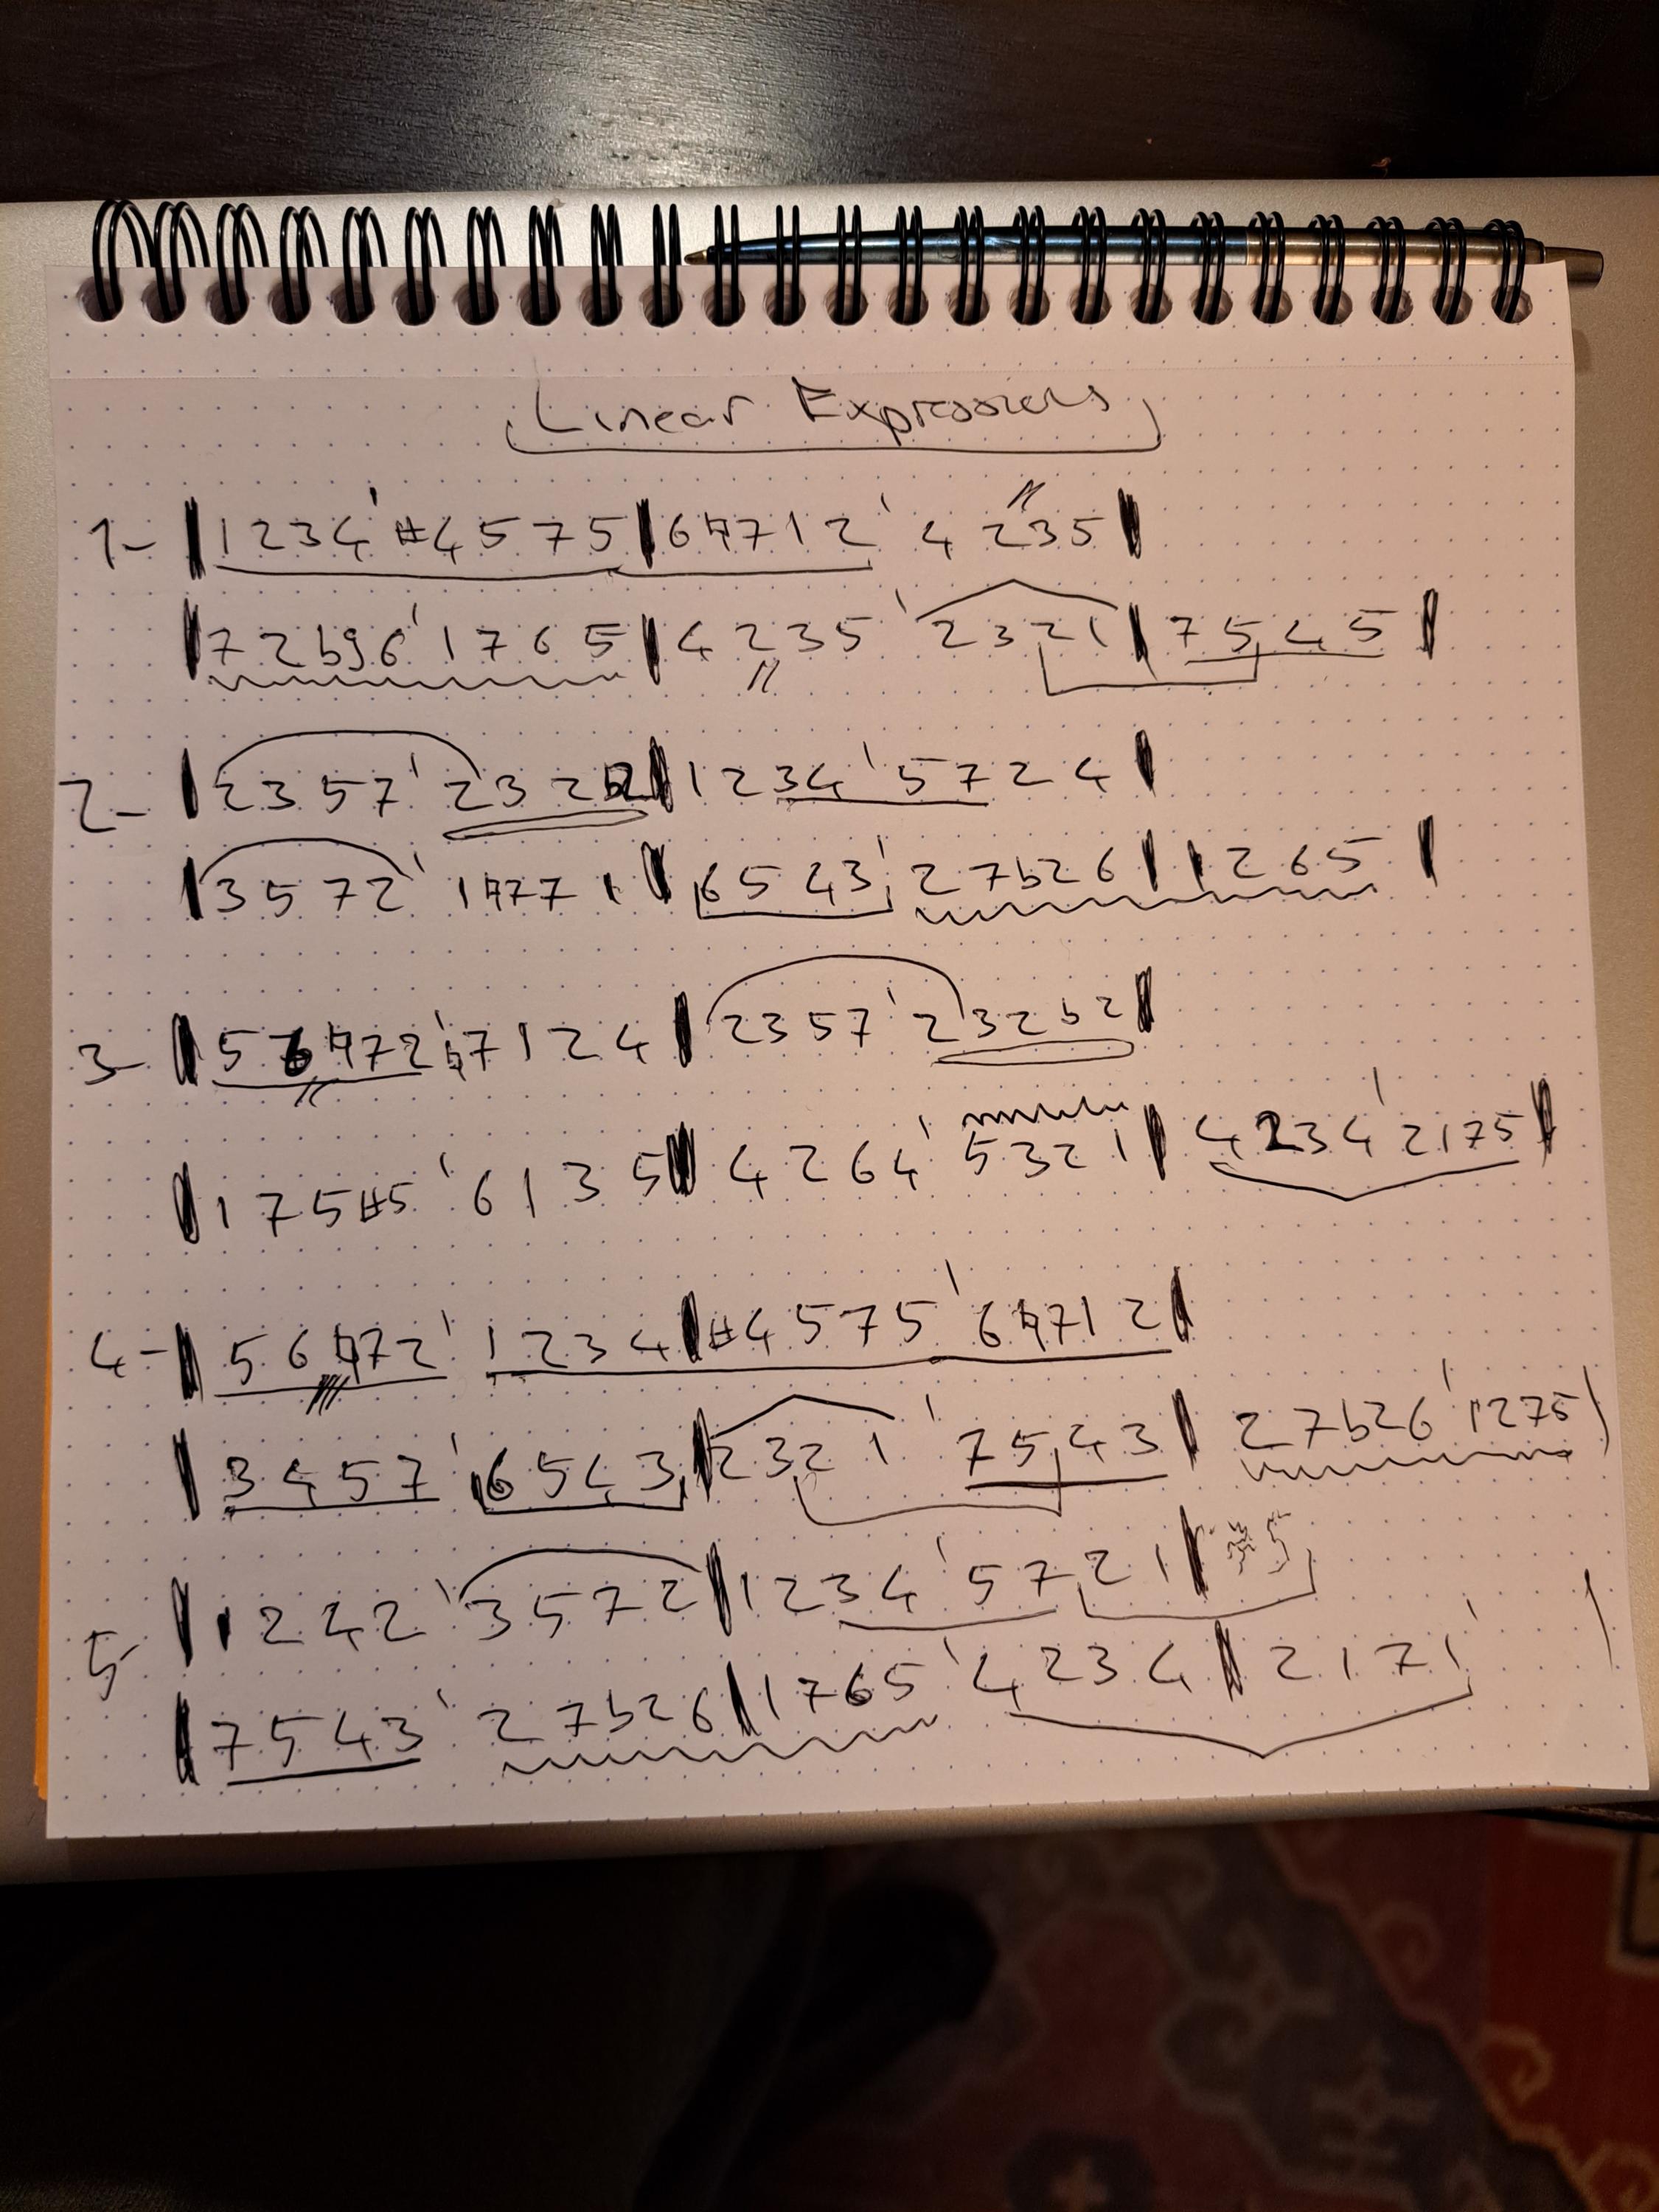 Linear Expressions
1- | 1 2 3 4 ' #4 5 7 5 | 6 ♮7 1 2 ' 4 2 3 5 |
| 7 2 b9 6 ' 1 7 6 5 | 4 2 3 5 ' 2 3 2 1 | 7 5 4 5 |
2- | 2 3 5 7 ' 2 3 2 b2 | 1 2 3 4 ' 5 7 2 4 |
| 3 5 7 2 ' 1 ♮7 7 1 | 6 5 4 3 ' 2 7 b2 6 | 1 2 6 5 |
3- | 5 6 ♮7 2 ' b7 1 2 4 | 2 3 5 7 ' 2 3 2 b2 |
| 1 7 5 #5 ' 6 1 3 5 | 4 2 6 4 ' 5 3 2 1 | 4 2 3 4 ' 2 1 7 5 |
4- | 5 6 ♮7 2 ' 1 2 3 4 | #4 5 7 5 ' 6 ♮7 1 2 |
| 3 4 5 7 ' 6 5 4 3 | 2 3 2 1 ' 7 5 4 3 | 2 7 b2 6 ' 1 2 7 5 |
5- | 1 2 4 2 ' 3 5 7 2 | 1 2 3 4 ' 5 7 2 1 | 5
| 7 5 4 3 ' 2 7 b2 6 | 1 7 6 5 ' 4 2 3 4 | 2 1 7 1 ' |